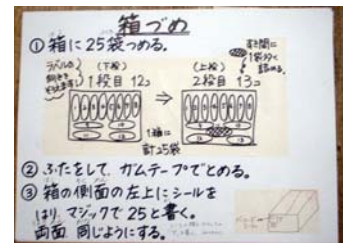 箱づめ
① 箱に25袋つめる。
ラベルの
向きを
そろえます
(下段)
1段目 12コ
⇒
(上段)
2段目 13コ
すき間に
1袋多く
詰める。
1箱に
計25袋
② ふたをして、ガムテープでとめる。
③ 箱の側面の左上にシールを
はり、マジックで25と書く。
両面 同じようにする。